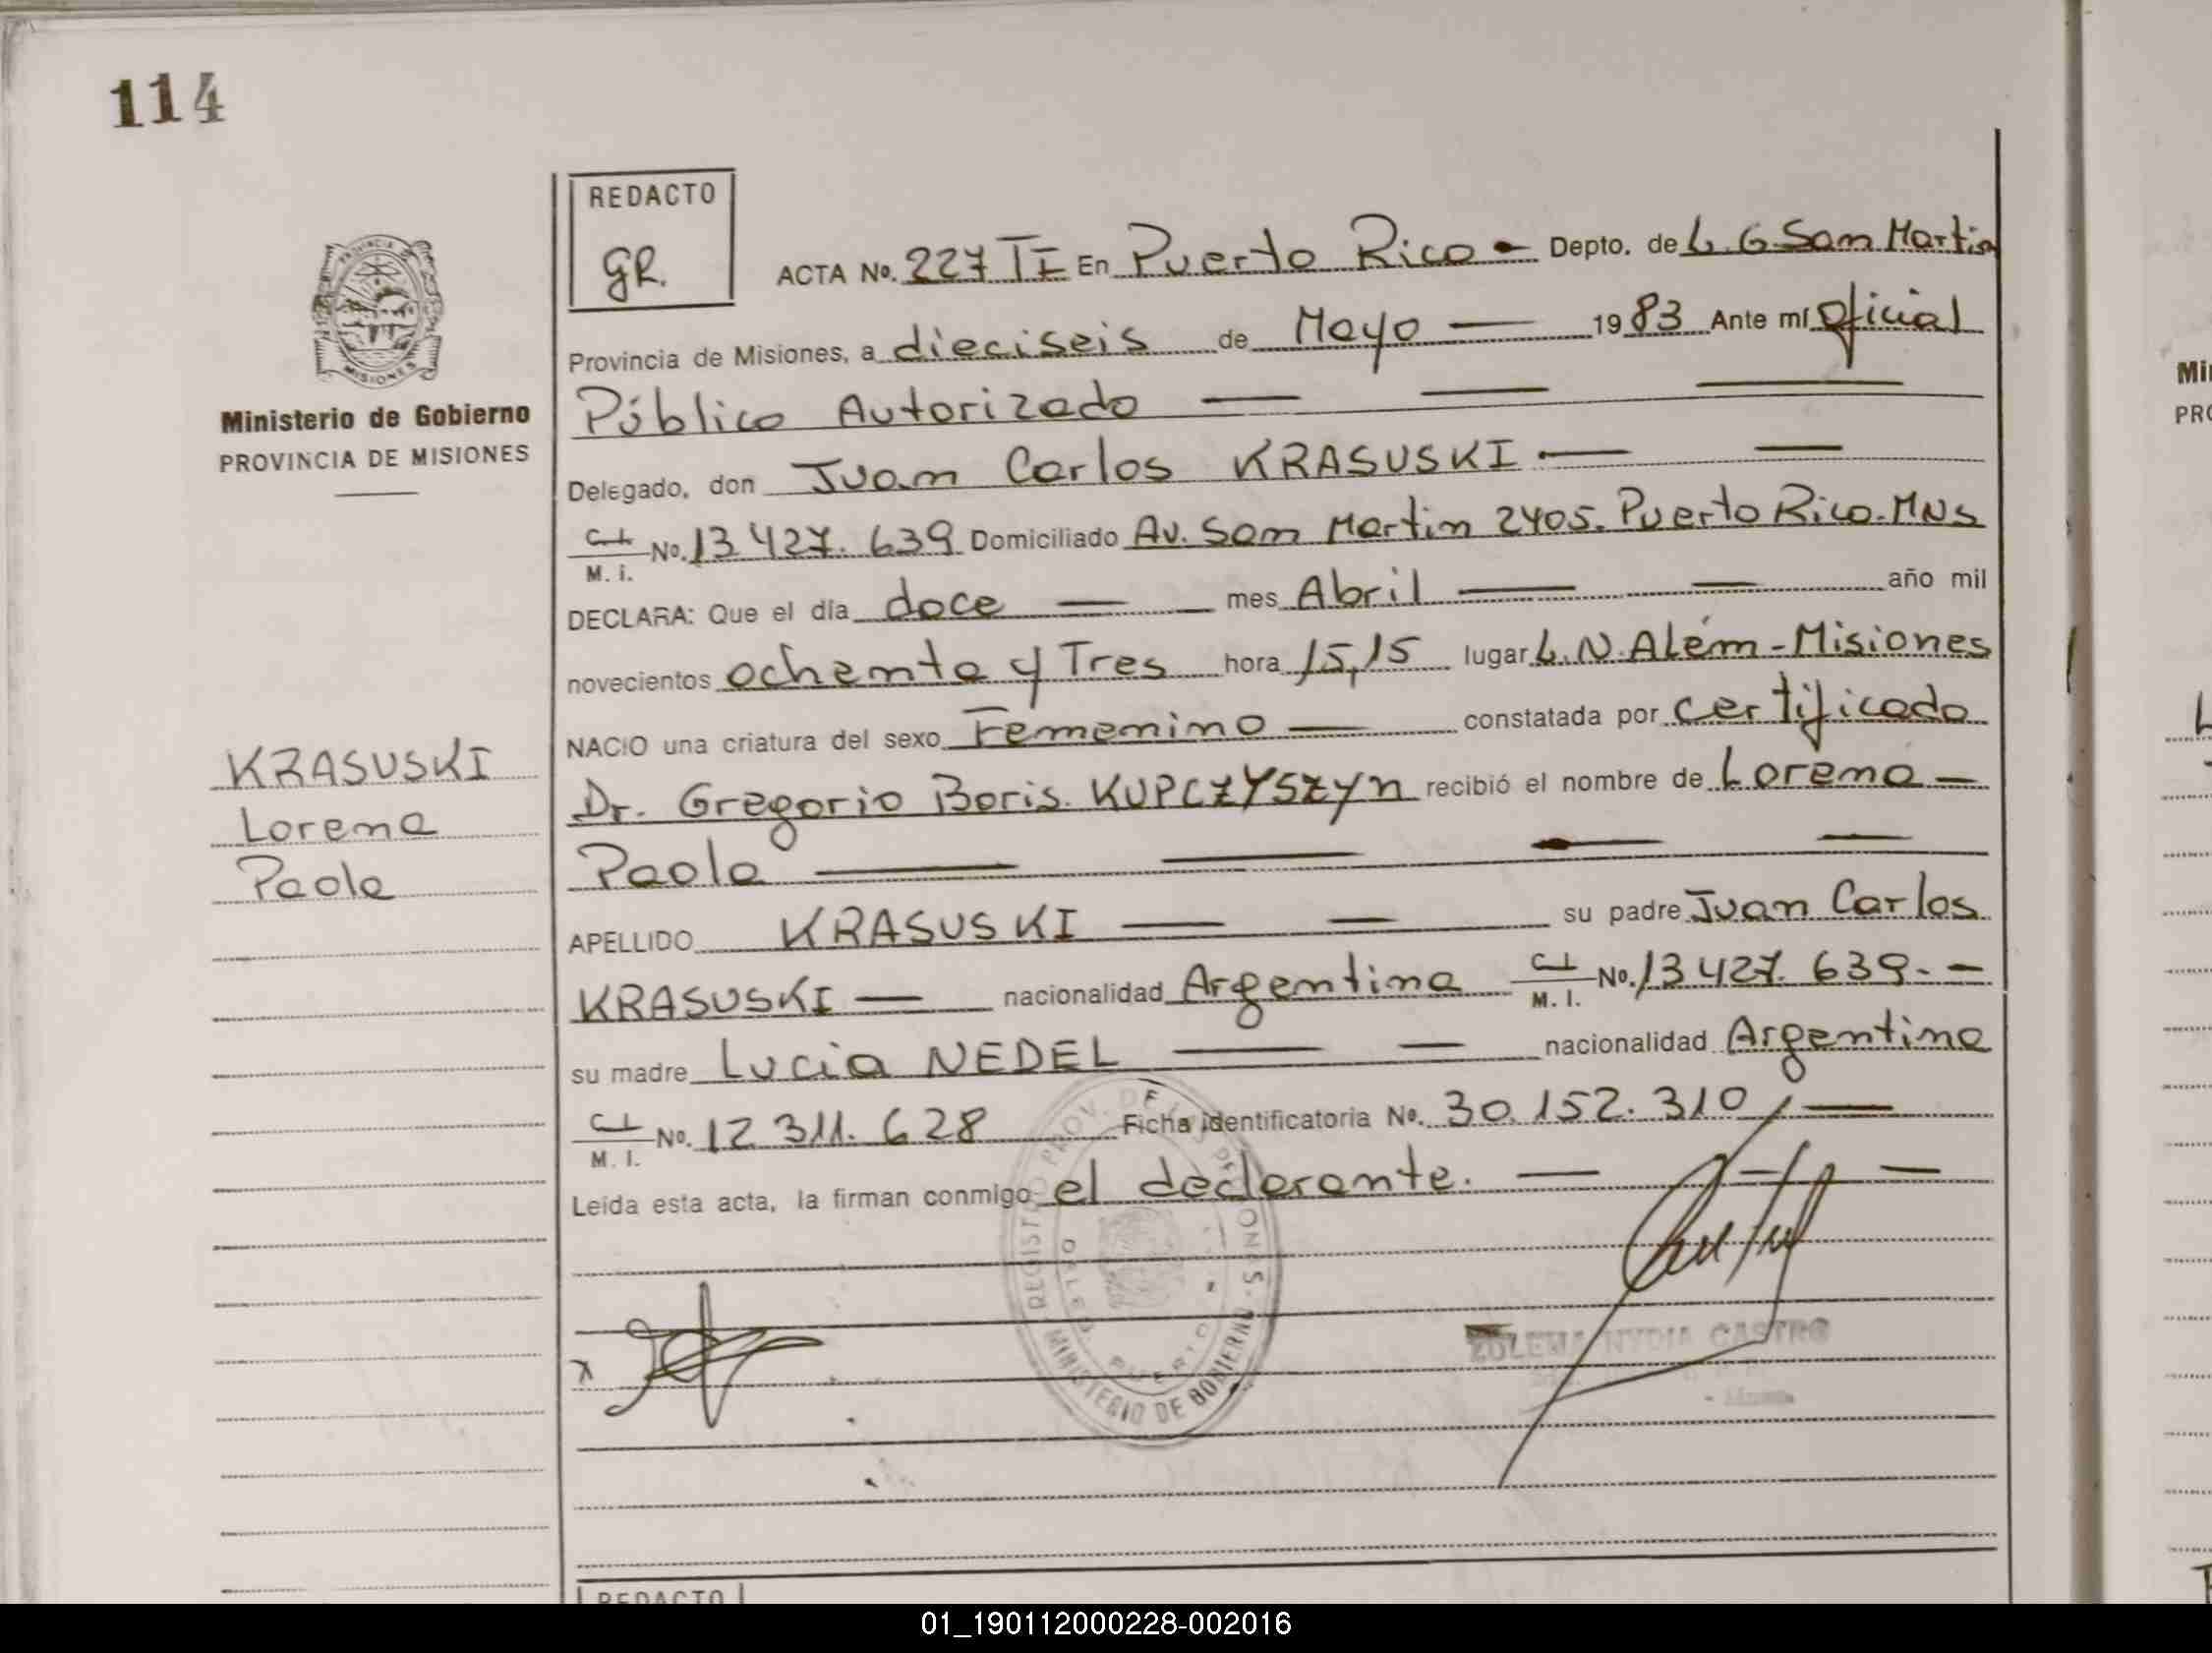 114
REDACTO
GR.
ACTA No. 227 TI En Puerto Rico - Depto. de L. G. San Martin
Provincia de Misiones, a dieciseis de Mayo — 1983 Ante mí Oficial
Público Autorizado — — —
Delegado, don Juan Carlos KRASUSKI — —
C.I. M. I. No. 13 427. 639 Domiciliado Av. San Martin 2405. Puerto Rico. MNS
DECLARA: Que el día doce — mes Abril — — año mil
novecientos ochenta y Tres hora 15,15 lugar L. N. Alem - Misiones
NACIO una criatura del sexo Femenino — constatada por certificado
Dr. Gregorio Boris. KUPCZYSZYN recibió el nombre de Lorena —
Paola — — — —
APELLIDO KRASUSKI — — su padre Juan Carlos
KRASUSKI — nacionalidad Argentina C.I. M. I. No. 13 427. 639. - —
su madre Lucia NEDEL — — nacionalidad Argentina
C.I. M. I. No. 12 311. 628 Ficha identificatoria No. 30. 152. 310 —
Leida esta acta, la firman conmigo el declarante. — — —
PROVINCIA DE
MISIONES
Ministerio de Gobierno
PROVINCIA DE MISIONES
KRASUSKI
Lorena
Paola
REGISTRO PROV. DE LAS PERSONAS
MINISTERIO DE GOBIERNO
PUERTO
x
ZULEMA NYDIA CASTRO
REDACTO
Mi
PRO
01_190112000228-002016